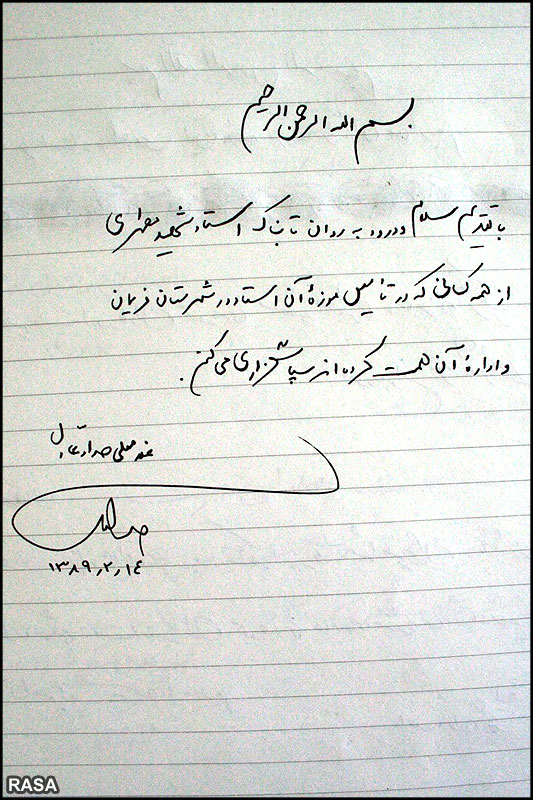 بسم الله الرحمن الرحیم
با تقدیم سلام و درود به روان تابناک استاد شهید مطهری
از همه کسانی که در تأسیس موزهٔ آن استاد در شهرستان فریمان
و ادارهٔ آن همت کرده‌اند سپاسگزاری می‌کنم.
غلامعلی حداد عادل
۱۳۸۹٫۲٫۱۴
RASA